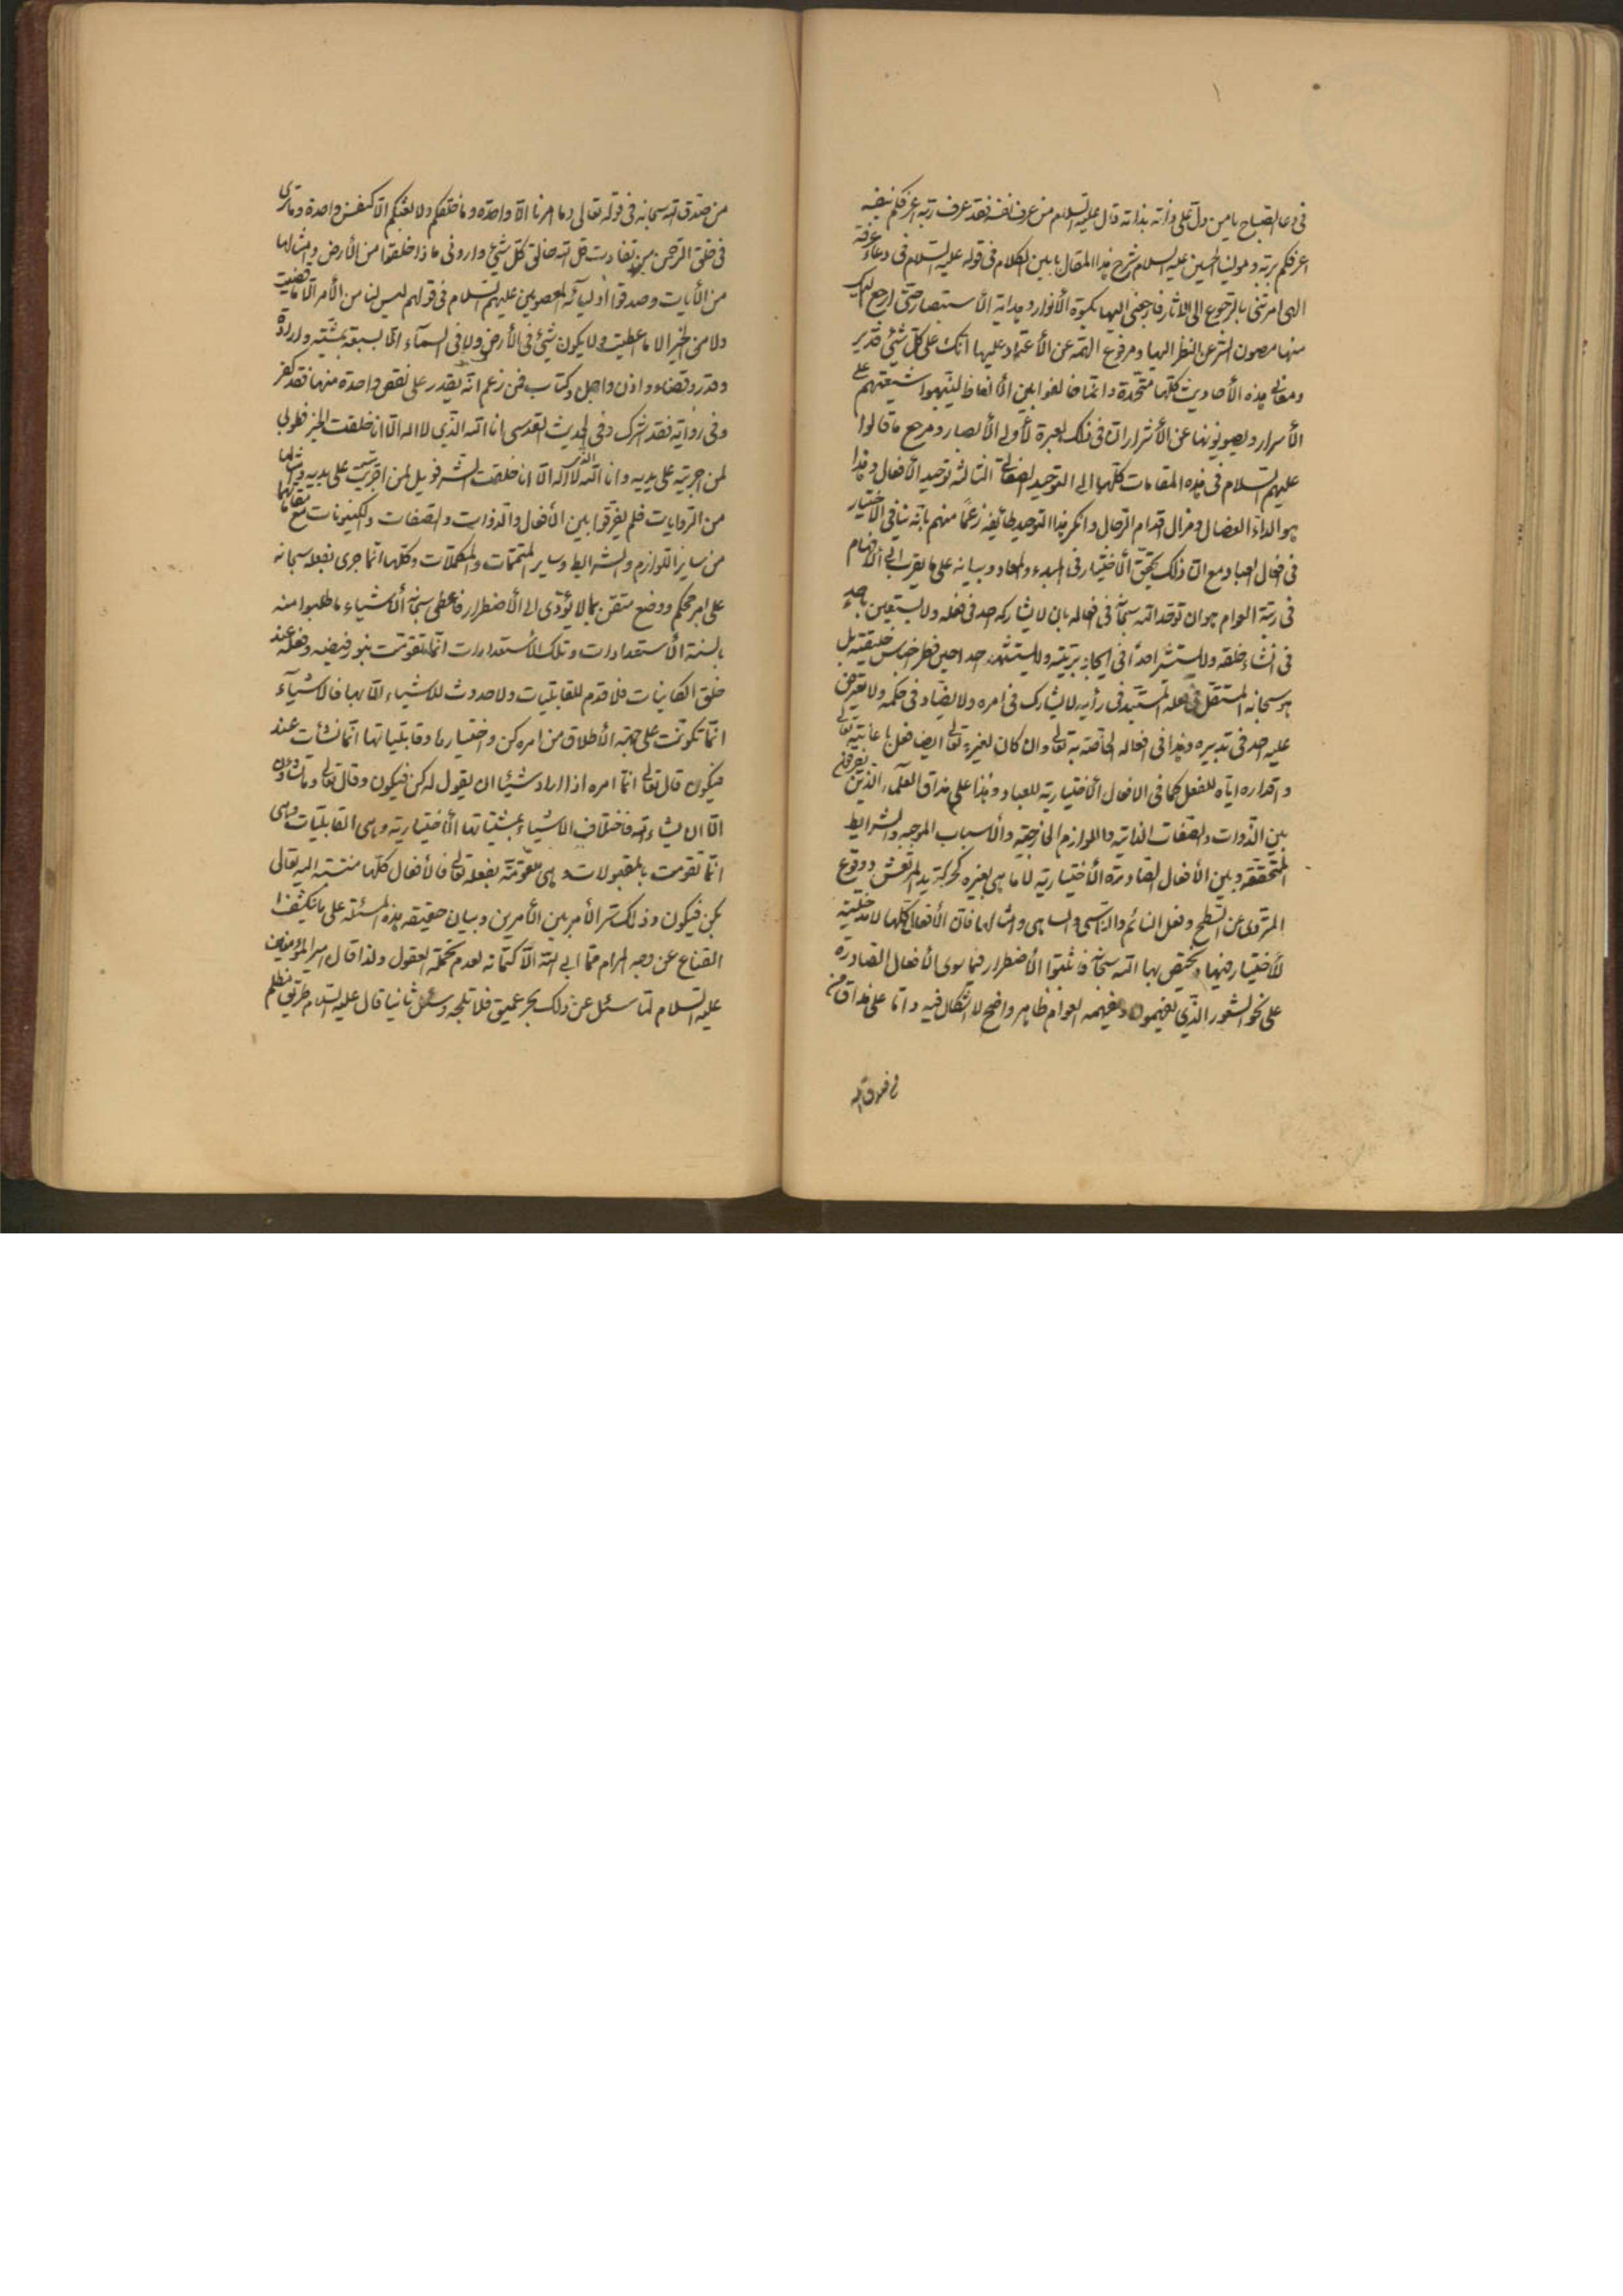 في دعاء الصباح يا من دل على ذاته بذاته وقال عليه السلام من عرف نفسه فقد عرف ربه اعرفكم بنفسه
اعرفكم بربه ومولينا الحسين عليه السلام شرح هذا المقال بابين الكلام في قوله عليه السلام في دعاء عرفة
الهي امرتني بالرجوع الى الاثار فارجعني اليها بكسوة الأنوار وهداية الأستبصار حتى ارجع اليك
منها مصون السر عن النظر اليها ومرفوع الهمة عن الأعتماد عليها انك على كل شئ قدير
ومعاني هذه الأحاديث كلها متحدة وانما خالفوا بين الألفاظ لينبهوا شيعتهم على
الأسرار ويصونونها عن الأشرار ان في ذلك لعبرة لأولي الأبصار ومرجع ما قالوا
عليهم السلام في هذه المقامات كلها الى التوحيد الصفاتي الثالثة توحيد الأفعال وهذا
هو الداء العضال ومزال اقدام الرجال وانكر هذا التوحيد طائفة زعما منهم بانه ينافي الاختيار
في افعال العباد مع ان ذلك يحقق الأختيار في المبدء والمعاد وبيانه على ما يقرب الى الأفهام
في رتبة العوام هو ان توحد الله سبحانه في افعاله بان لا يشاركه احد في فعله ولا يستعين باحد
في انشاء خلقه ولا يستشير احدا في ايجاد بريته ولا يستشهد احدا حين فطر اجناس خليقته بل
هو سبحانه المستقل في فعله المستبد في رأيه لا يشارك في امره ولا يضاد في حكمه ولا يعترض
عليه احد في تدبيره وهذا في افعاله الخاصة به تعالى وان كان لغيره تعالى ايضا فعل باعانته تعالى
واقداره اياه للفعل كما في الافعال الأختيارية للعباد وهذا على مذاق العلماء الذين يفرقون
بين الذوات والصفات الذاتية واللوازم الخارجية والأسباب الموجبه والشرايط
المتحققه وبين الأفعال الصادرة الأختيارية لا ما هي لغيره كحركة يد المرتعش ووقوع
المتردي عن السطح وفعل النائم والناسي والساهي وامثالها فان الأفعال كلها لا مدخلية
للأختيار فيها ويختص بها الله سبحانه فاثبتوا الأضطرار فيما سوى الأفعال الصادرة
على نحو الشعور الذي يفهمونه ويفهمه العوام ظاهر واضح لا اشكال فيه واما على مذاق من
من صدق الله سبحانه في قوله تعالى وما امرنا الا واحدة وما خلقكم ولا بعثكم الا كنفس واحدة وما ترى
في خلق الرحمن من تفاوت قل الله خالق كل شئ واروني ماذا خلقوا من الأرض وامثالها
من الأيات وصدقوا اوليائه المعصومين عليهم السلام في قولهم ليس لنا من الأمر الا ما قضيت
ولا من الخير الا ما اعطيت ولا يكون شئ في الأرض ولا في السمآء الا بسبعة بمشية وارادة
وقدر وقضاء واذن واجل وكتاب فمن زعم انه يقدر على نقص واحدة منها فقد كفر
وفي رواية فقد اشرك وفي الحديث القدسي انا الله الذي لا اله الا انا خلقت الخير فطوبى
لمن اجريته على يديه وانا الله الذي لا اله الا انا خلقت الشر فويل لمن اجريت على يديه وامثالها
من الروايات فلم يفرقوا بين الأفعال والذوات والصفات والكينونات مع مقاماتها
من ساير اللوازم والشرايط وساير المتممات والمكملات وكلها انما جرى بفعله سبحانه
على امر محكم ووضع متقن بما لا يؤدى الى الأضطرار فاعطى سبحانه الأشياء ما طلبوا منه
بالسنة الأستعدادات وتلك الأستعدادات انما تقومت بنور فيضه وفعله عند
خلق الكاينات فلا قدم للقابليات ولا حدوث للأشياء الا بها فالاشيآء
انما تكونت على جهة الأطلاق من امره كن واختيارها وقابلياتها انما نشأت عند
فيكون قال تعالى انما امره اذا اراد شيئا ان يقول له كن فيكون وقال تعالى وما تشاؤن
الا ان يشاء الله فاختلاف الاشياء بمشيئاتها الأختيارية وهي القابليات وهي
انما تقومت بالمقبولات وهي متقومة بفعله تعالى فالأفعال كلها منتهية اليه تعالى
بكن فيكون وذلك سر الأمر بين الأمرين وبيان حقيقة هذه المسئلة على ما ينكشف
القناع عن وجه المرام مما ابى الله الا كتمانه لعدم تحمله العقول ولذا قال امير المؤمنين
عليه السلام لما سئل عن ذلك بحر عميق فلا تلجه وسئل ثانيا قال عليه السلام طريق مظلم